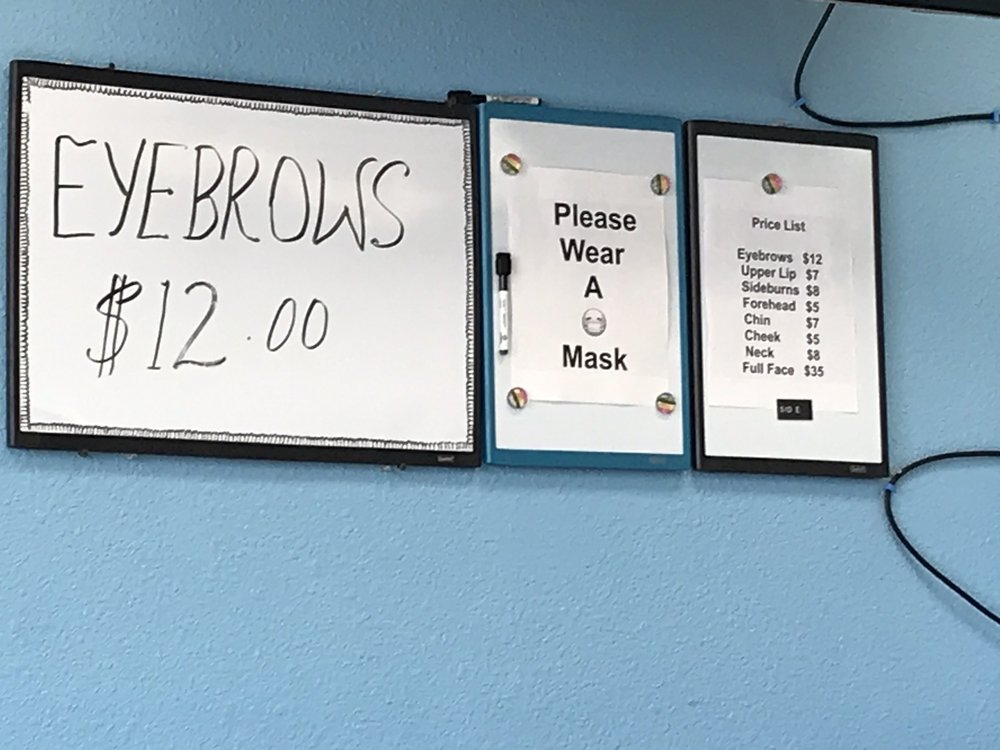 EYEBROWS
$12.00
Please
Wear
A
Mask
Price List
Eyebrows $12
Upper Lip $7
Sideburns $8
Forehead $5
Chin $7
Cheek $5
Neck $8
Full Face $35